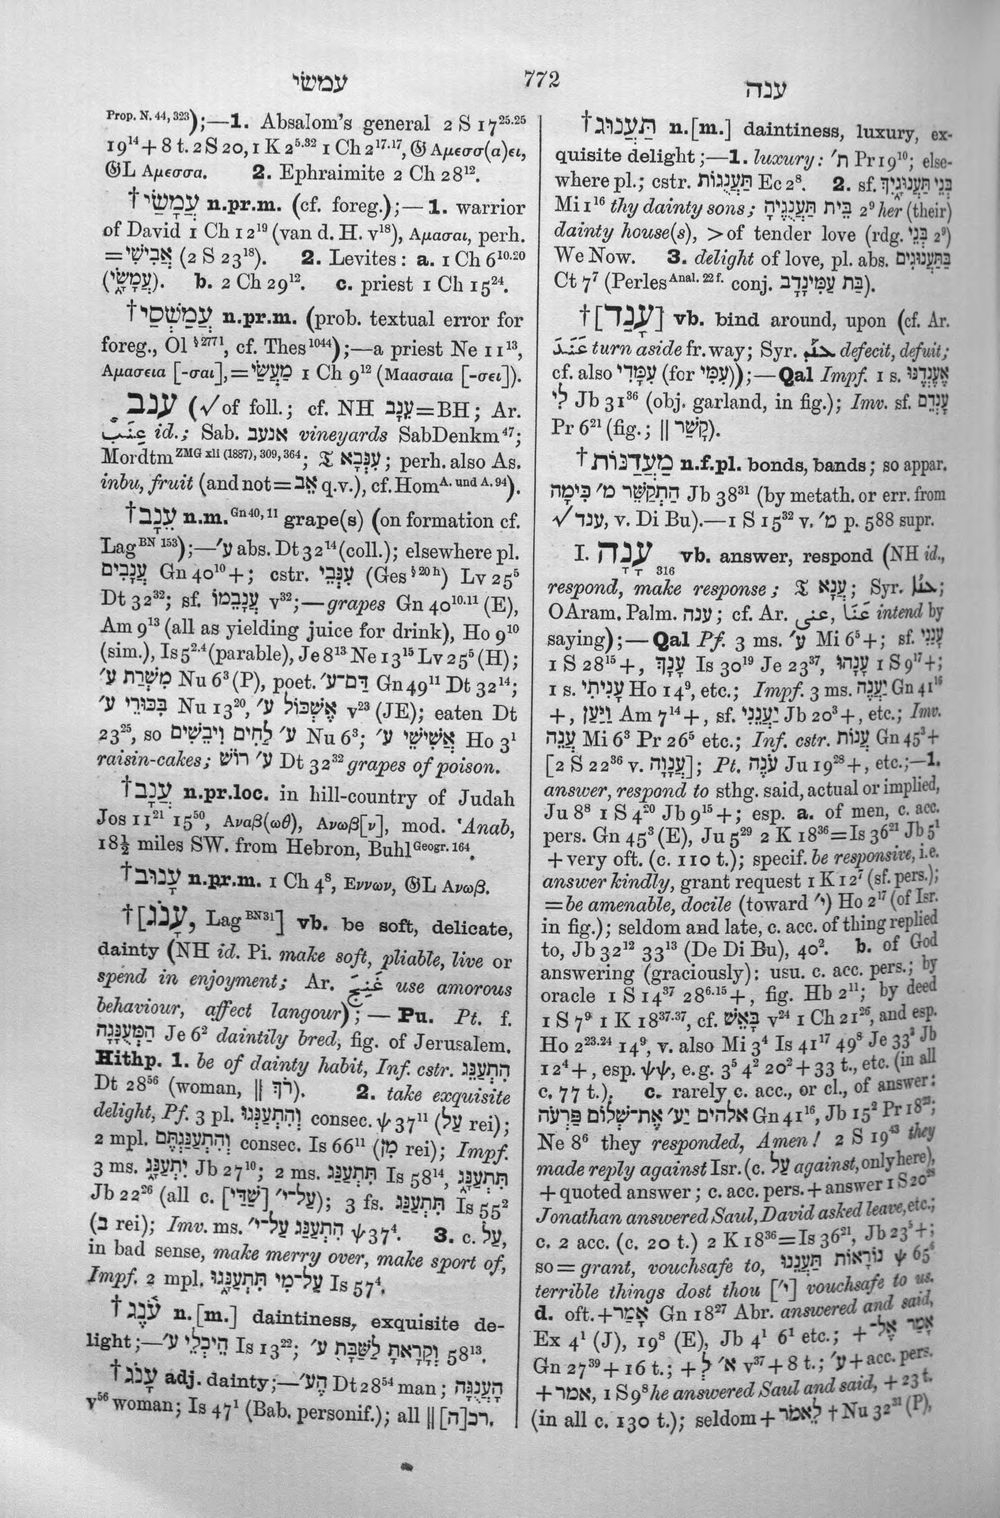 עמשי
772
ענה
Prop. N. 44, 323);—1. Absalom's general 2 S 17²⁵·²⁵
19¹⁴ + 8 t. 2 S 20, 1 K 2⁵·³² 1 Ch 2¹⁷·¹⁷, 𝔊 Αμεσσ(α)ει,
𝔊L Αμεσσα. 2. Ephraimite 2 Ch 28¹².
†עֲמָשַׂי n.pr.m. (cf. foreg.);—1. warrior
of David 1 Ch 12¹⁹ (van d. H. v¹⁸), Αμασαι, perh.
=אֲבִישַׁי (2 S 23¹⁸). 2. Levites: a. 1 Ch 6¹⁰·²⁰
(עֲמָשָׂי). b. 2 Ch 29¹². c. priest 1 Ch 15²⁴.
†עֲמַשְׁסַי n.pr.m. (prob. textual error for
foreg., Ol §277 l, cf. Thes¹⁰⁴⁴);—a priest Ne 11¹³,
Αμασεια [-σαι], = מַעֲשַׂי 1 Ch 9¹² (Μαασαια [-σει]).
ענב (√ of foll.; cf. NH עֵנָב=BH; Ar.
عِنَب id.; Sab. אנעב vineyards SabDenkm⁴⁷;
Mordtm ZMG xli (1887), 309, 364; 𝔗 עִנְּבָא; perh. also As.
inbu, fruit (and not=אֵב q.v.), cf. Hom A. und A. 94).
†עֵנָב n.m. Gn 40, 11 grape(s) (on formation cf.
Lag BN 153);—ע׳ abs. Dt 32¹⁴ (coll.); elsewhere pl.
עֲנָבִים Gn 40¹⁰ +; cstr. עִנְּבֵי (Ges § 20 h) Lv 25⁵
Dt 32³²; sf. עֲנָבֵמוֹ v³²;—grapes Gn 40¹⁰·¹¹ (E),
Am 9¹³ (all as yielding juice for drink), Ho 9¹⁰
(sim.), Is 5²·⁴ (parable), Je 8¹³ Ne 13¹⁵ Lv 25⁵ (H);
מִשְׁרַת ע׳ Nu 6³ (P), poet. דַּם־ע׳ Gn 49¹¹ Dt 32¹⁴;
בִּכּוּרֵי ע׳ Nu 13²⁰, אֶשְׁכּוֹל ע׳ v²³ (JE); eaten Dt
23²⁵, so ע׳ לַחִים וִיבֵשִׁים Nu 6³; אֲשִׁישֵׁי ע׳ Ho 3¹
raisin-cakes; ע׳ רוֹשׁ Dt 32³² grapes of poison.
†עֲנָב n.pr.loc. in hill-country of Judah
Jos 11²¹ 15⁵⁰, Αναβ(ωθ), Ανωβ[ν], mod. 'Anab,
18½ miles SW. from Hebron, Buhl Geogr. 164.
†עָנוּב n.pr.m. 1 Ch 4⁸, Εννων, 𝔊L Ανωβ.
†[עָנֹג, Lag BN 31] vb. be soft, delicate,
dainty (NH id. Pi. make soft, pliable, live or
spend in enjoyment; Ar. غَنِجَ use amorous
behaviour, affect langour);—Pu. Pt. f.
הַמְּעֻנָּגָה Je 6² daintily bred, fig. of Jerusalem.
Hithp. 1. be of dainty habit, Inf. cstr. הִתְעַנֵּג
Dt 28⁵⁶ (woman, || רֹךְ). 2. take exquisite
delight, Pf. 3 pl. וְהִתְעַנְּגוּ consec. ψ 37¹¹ (עַל rei);
2 mpl. וְהִתְעַנַּגְתֶּם consec. Is 66¹¹ (מִן rei); Impf.
3 ms. יִתְעַנָּג Jb 27¹⁰; 2 ms. תִּתְעַנַּג Is 58¹⁴, תִּתְעַנָּג
Jb 22²⁶ (all c. עַל־י׳ [שַׁדַּי]); 3 fs. תִּתְעַנַּג Is 55²
(בּ rei); Imv. ms. הִתְעַנַּג עַל־י׳ ψ 37⁴. 3. c. עַל,
in bad sense, make merry over, make sport of,
Impf. 2 mpl. עַל־מִי תִּתְעַנָּגוּ Is 57⁴.
†עֹנֶג n.[m.] daintiness, exquisite de-
light;—הֵיכְלֵי ע׳ Is 13²²; וְקָרָאתָ לַשַּׁבָּת ע׳ 58¹³.
†עָנֹג adj. dainty;—הֶע׳ Dt 28⁵⁴ man; הָעֲנֻגָּה
v⁵⁶ woman; Is 47¹ (Bab. personif.); all || רכ[ה].
†תַּעֲנוּג n.[m.] daintiness, luxury, ex-
quisite delight;—1. luxury: ת׳ Pr 19¹⁰; else-
where pl.; cstr. תַּעֲנֻגוֹת Ec 2⁸. 2. sf. בְּנֵי תַּעֲנוּגָיִךְ
Mi 1¹⁶ thy dainty sons; בֵּית תַּעֲנֻגֶיהָ 2⁹ her (their)
dainty house(s), > of tender love (rdg. בְּנֵי 2⁹)
We Now. 3. delight of love, pl. abs. בַּתַּעֲנוּגִים
Ct 7⁷ (Perles Anal. 22 f. conj. בַּת עֲמִינָדָב).
†[עָנַד] vb. bind around, upon (cf. Ar.
عَنَدَ turn aside fr. way; Syr. defecit, defuit;
cf. also עִמָּדִי (for עִמִּי));—Qal Impf. 1 s. אֶעֶנְדֶנּוּ
לִי Jb 31³⁶ (obj. garland, in fig.); Imv. sf. עָנְדֵם
Pr 6²¹ (fig.; || קָשַׁר).
†מַעֲדַנּוֹת n.f.pl. bonds, bands; so appar.
הַתְקַשֵּׁר מ׳ כִּימָה Jb 38³¹ (by metath. or err. from
√ענד, v. Di Bu).—1 S 15³² v. מ׳ p. 588 supr.
I. עָנָה 316 vb. answer, respond (NH id.,
respond, make response; 𝔗 עֲנָא; Syr. ܥܢܐ;
OAram. Palm. ענה; cf. Ar. عنى, عَنَا intend by
saying);—Qal Pf. 3 ms. ע׳ Mi 6⁵ +; sf. עָנָנִי
1 S 28¹⁵ +, עָנָךְ Is 30¹⁹ Je 23³⁷, עָנָהוּ 1 S 9¹⁷ +;
1 s. עָנִיתִי Ho 14⁹, etc.; Impf. 3 ms. יַעֲנֶה Gn 41¹⁶
+, וַיַּעַן Am 7¹⁴ +, sf. יַעֲנֵנִי Jb 20³ +, etc.; Imv.
עֲנֵה Mi 6³ Pr 26⁵ etc.; Inf. cstr. עֲנוֹת Gn 45³ +
[2 S 22³⁶ v. עֲנָוָה]; Pt. עֹנֶה Ju 19²⁸ +, etc.;—1.
answer, respond to sthg. said, actual or implied,
Ju 8⁸ 1 S 4²⁰ Jb 9¹⁵ +; esp. a. of men, c. acc.
pers. Gn 45³ (E), Ju 5²⁹ 2 K 18³⁶=Is 36²¹ Jb 5¹
+ very oft. (c. 110 t.); specif. be responsive, i.e.
answer kindly, grant request 1 K 12⁷ (sf. pers.);
=be amenable, docile (toward י׳) Ho 2¹⁷ (of Isr.
in fig.); seldom and late, c. acc. of thing replied
to, Jb 32¹² 33¹³ (De Di Bu), 40². b. of God
answering (graciously): usu. c. acc. pers.; by
oracle 1 S 14³⁷ 28⁶·¹⁵ +, fig. Hb 2¹¹; by deed
1 S 7⁹ 1 K 18³⁷·³⁷, cf. בָּאֵשׁ v²⁴ 1 Ch 21²⁶, and esp.
Ho 2²³·²⁴ 14⁹, v. also Mi 3⁴ Is 41¹⁷ 49⁸ Je 33³ Jb
12⁴ +, esp. ψψ, e.g. 3⁵ 4² 20² + 33 t., etc. (in all
c. 77 t.). c. rarely c. acc., or cl., of answer:
אלהים יַע׳ אֶת־שְׁלוֹם פַּרְעֹה Gn 41¹⁶, Jb 15² Pr 18²³;
Ne 8⁶ they responded, Amen! 2 S 19⁴³ they
made reply against Isr. (c. עַל against, only here),
+ quoted answer; c. acc. pers. + answer 1 S 20²⁸
Jonathan answered Saul, David asked leave, etc.;
c. 2 acc. (c. 20 t.) 2 K 18³⁶=Is 36²¹, Jb 23⁵ +;
so=grant, vouchsafe to, נוֹרָאוֹת תַּעֲנֵנוּ ψ 65⁶
terrible things dost thou [י׳] vouchsafe to us.
d. oft. + אָמַר Gn 18²⁷ Abr. answered and said,
Ex 4¹ (J), 19⁸ (E), Jb 4¹ 6¹ etc.; + אָמַר אֶל־
Gn 27³⁹ + 16 t.; + א׳ לְ v³⁷ + 8 t.; ע׳ + acc. pers.
+ אמר, 1 S 9⁸ he answered Saul and said, + 23 t.
(in all c. 130 t.); seldom + לֵאמֹר † Nu 32³¹ (P),